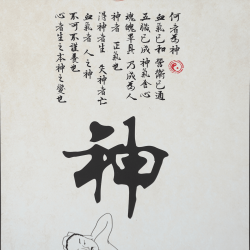 何者為神
血氣已和 營衛已通
五臟已成 神氣舍心
魂魄畢具 乃成為人
神者 正氣也
得神者生 失神者亡
血氣者 人之神
不可不謹養也
心者生之本神之變也
神